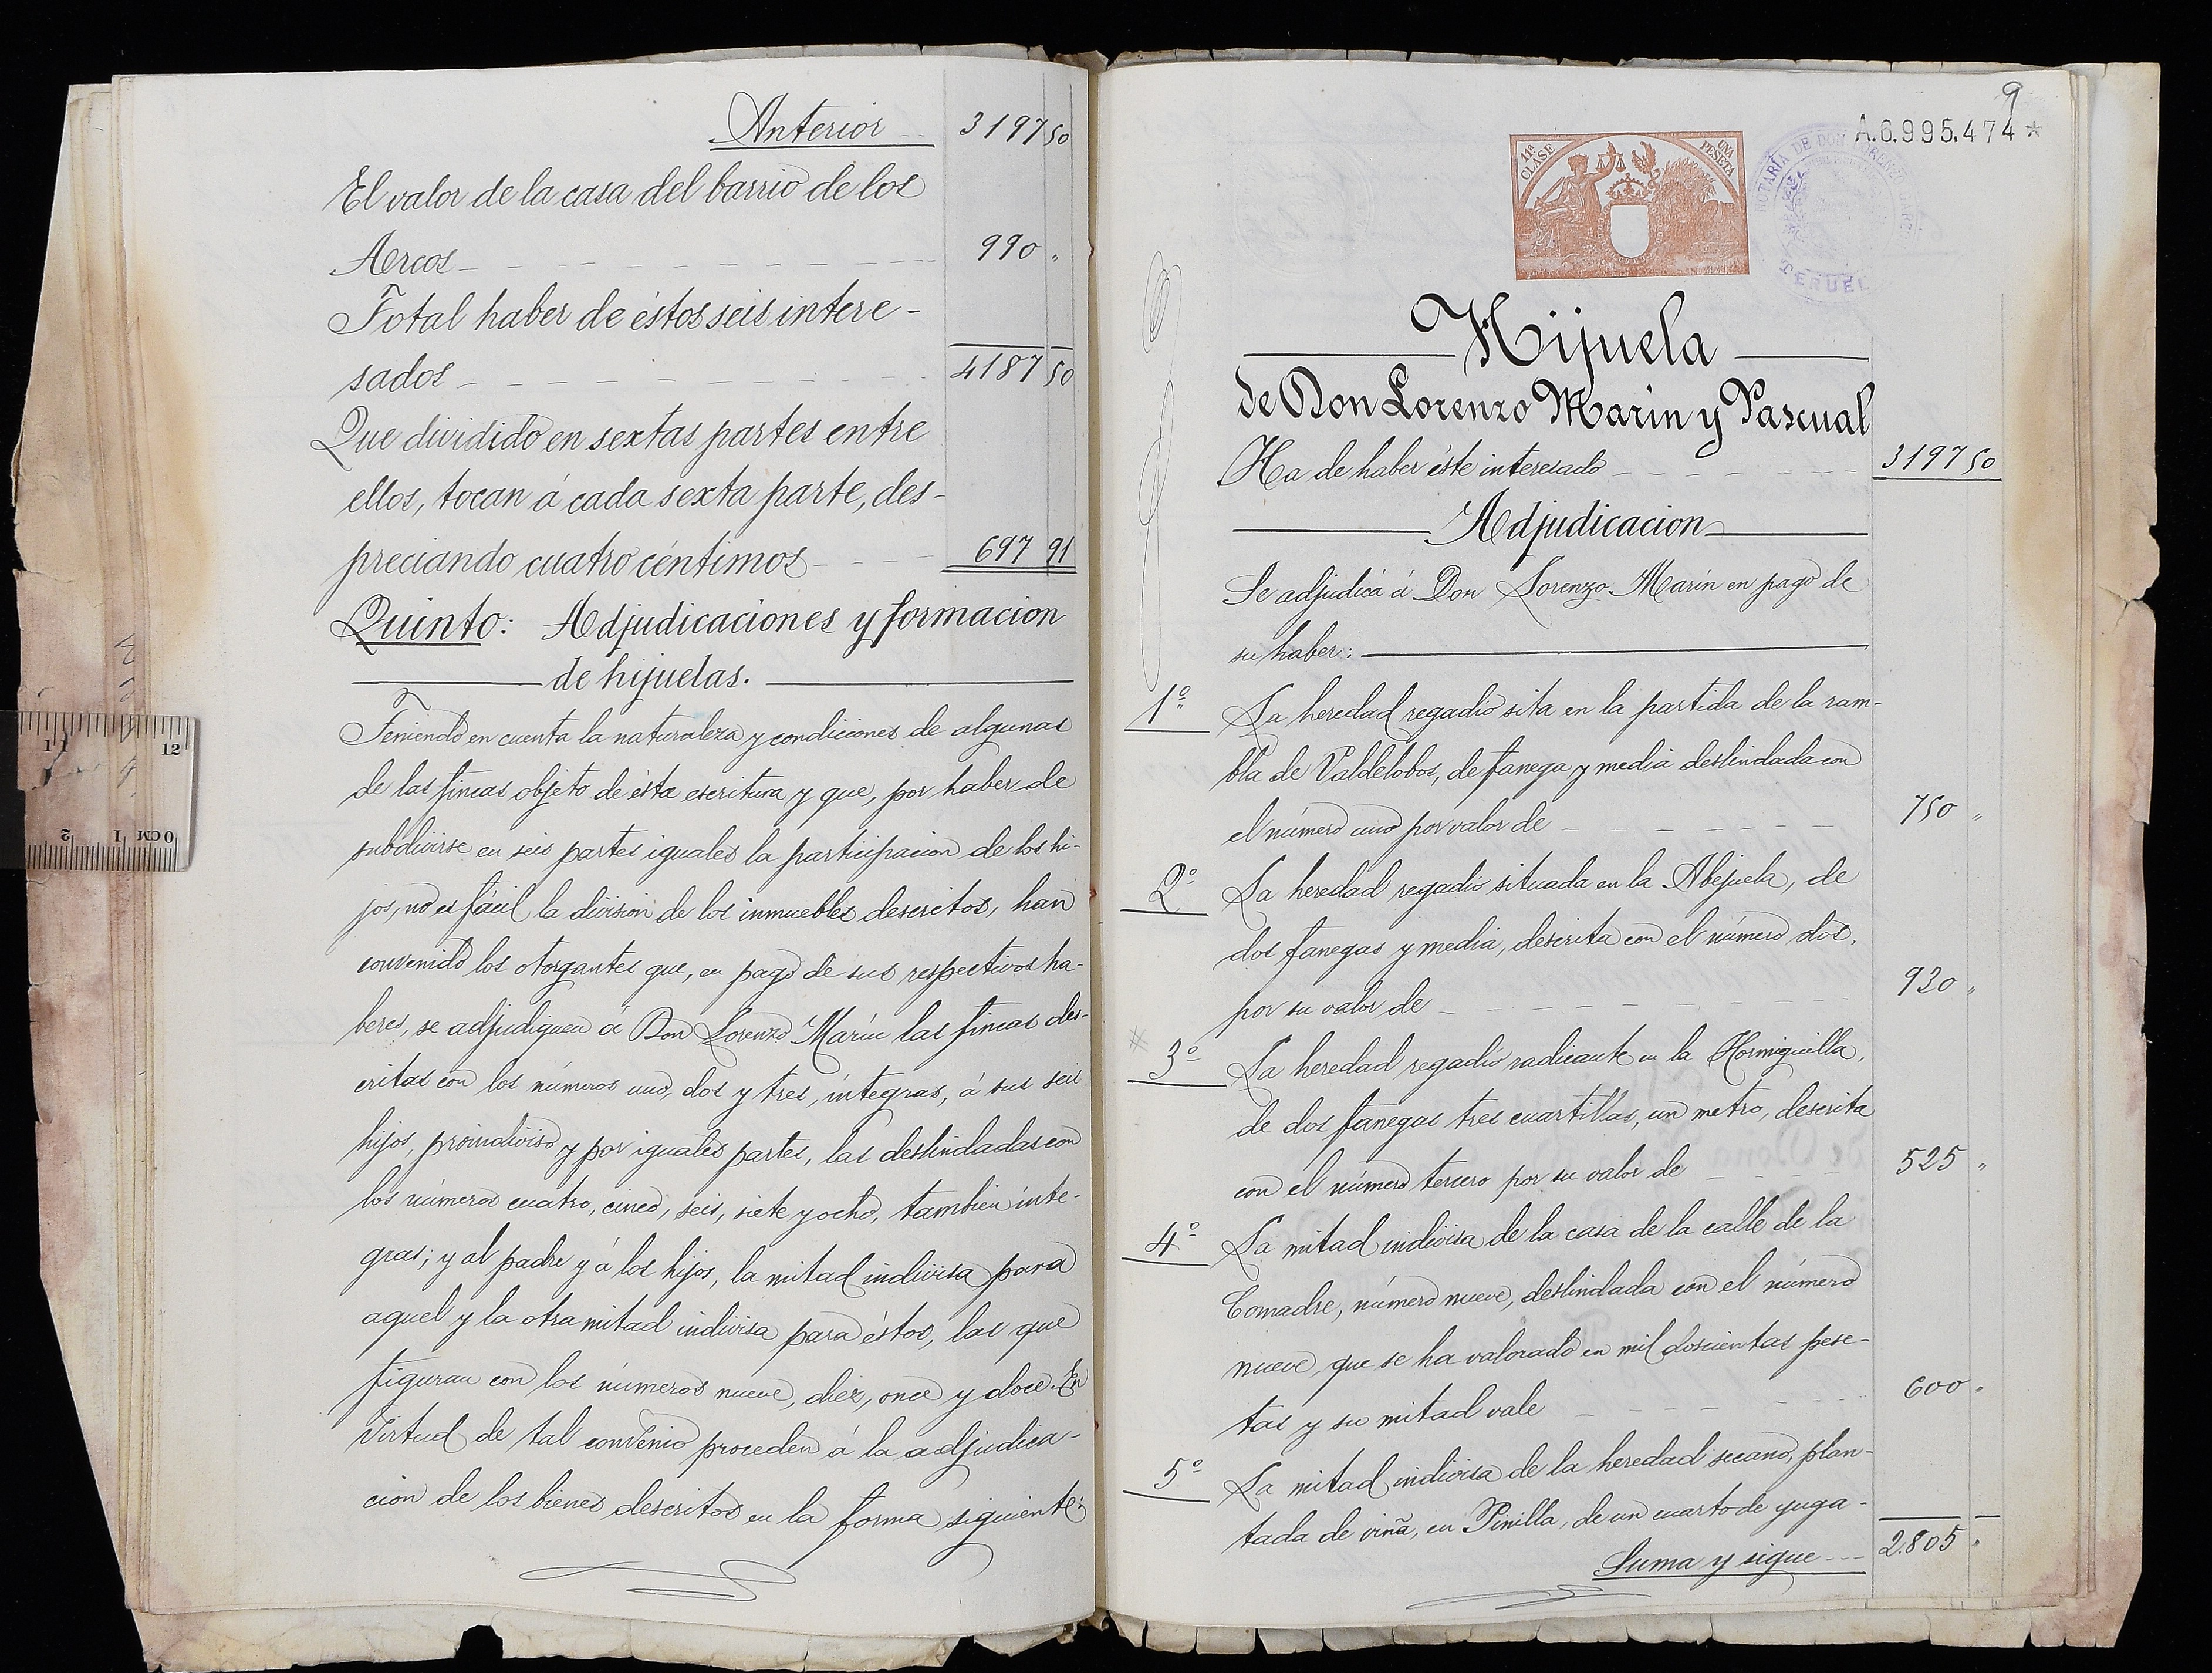 Anterior 3197 50
El valor de la casa del barrio de los
Arcos 990 "
Total haber de éstos seis intere-
sados 4187 50
Que dividido en sextas partes entre
ellos, tocan á cada sexta parte, des-
preciando cuatro céntimos 697 91
Quinto: Adjudicaciones y formacion
de hijuelas.
Teniendo en cuenta la naturaleza y condiciones de algunas
de las fincas objeto de ésta escritura y que, por haber de
subdivirse en seis partes iguales la participacion de los hi-
jos, no es fácil la division de los inmuebles descritos, han
convenido los otorgantes que, en pago de sus respectivos ha-
beres, se adjudiquen á Don Lorenzo Marín las fincas des-
critas con los números uno, dos y tres, íntegras, á sus seis
hijos, proindiviso y por iguales partes, las deslindadas con
los números cuatro, cinco, seis, siete y ocho, tambien ínte-
gras; y al padre y á los hijos, la mitad indivisa para
aquel y la otra mitad indivisa para éstos, las que
figuran con los números nueve, diez, once y doce. En
virtud de tal convenio proceden á la adjudica-
cion de los bienes descritos en la forma siguiente:
9
A.6.995.474*
11ª CLASE
UNA PESETA
NOTARÍA DE DON LORENZO
TERUEL
Hijuela
de Don Lorenzo Marin y Pascual
Ha de haber éste interesado 3197 50
Adjudicacion
Se adjudica á Don Lorenzo Marín en pago de
su haber:
1º La heredad regadío sita en la partida de la ram-
bla de Valdelobos, de fanega y media deslindada con
el número uno por valor de 750 "
2º La heredad regadío situada en la Abejuela, de
dos fanegas y media, descrita con el número dos,
por su valor de 930 "
3º La heredad regadío radicante en la Hormiguilla,
de dos fanegas tres cuartillas, un metro, descrita
con el número tercero por su valor de 525 "
4º La mitad indivisa de la casa de la calle de la
Comadre, número nueve, deslindada con el número
nueve, que se ha valorado en mil doscientas pese-
tas y su mitad vale 600 "
5º La mitad indivisa de la heredad secano, plan-
tada de viña, en Pinilla, de un cuarto de yuga-
Suma y sigue 2.805 "